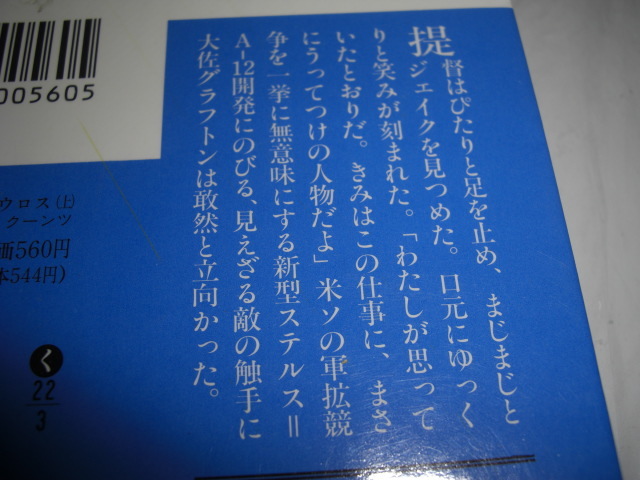 提督はぴたりと足を止め、まじまじと
ジェイクを見つめた。口元にゆっく
りと笑みが刻まれた。「わたしが思って
いたとおりだ。きみはこの仕事に、まさ
にうってつけの人物だよ」米ソの軍拡競
争を一挙に無意味にする新型ステルス=
A-12開発にのびる、見えざる敵の触手に
大佐グラフトンは敢然と立向かった。
005605
ウロス(上)
クーンツ
価560円
本544円)
く
22
3